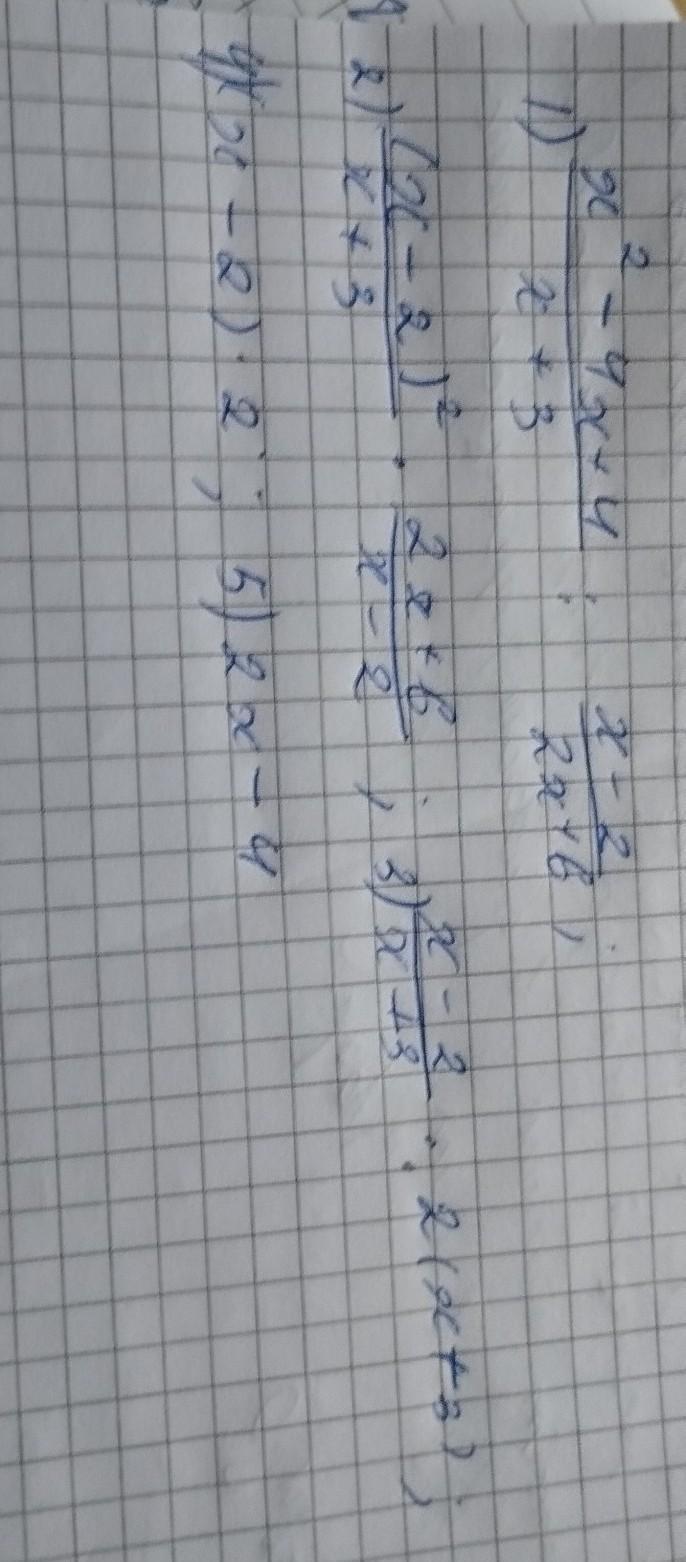 1) \frac{x^2 - 4x + 4}{x + 3} : \frac{x - 2}{2x + 6};
2) \frac{(x - 2)^2}{x + 3} \cdot \frac{2x + 6}{x - 2}; 3) \frac{x - 2}{x + 3} \cdot 2(x + 3);
4) (x - 2) \cdot 2; 5) 2x - 4